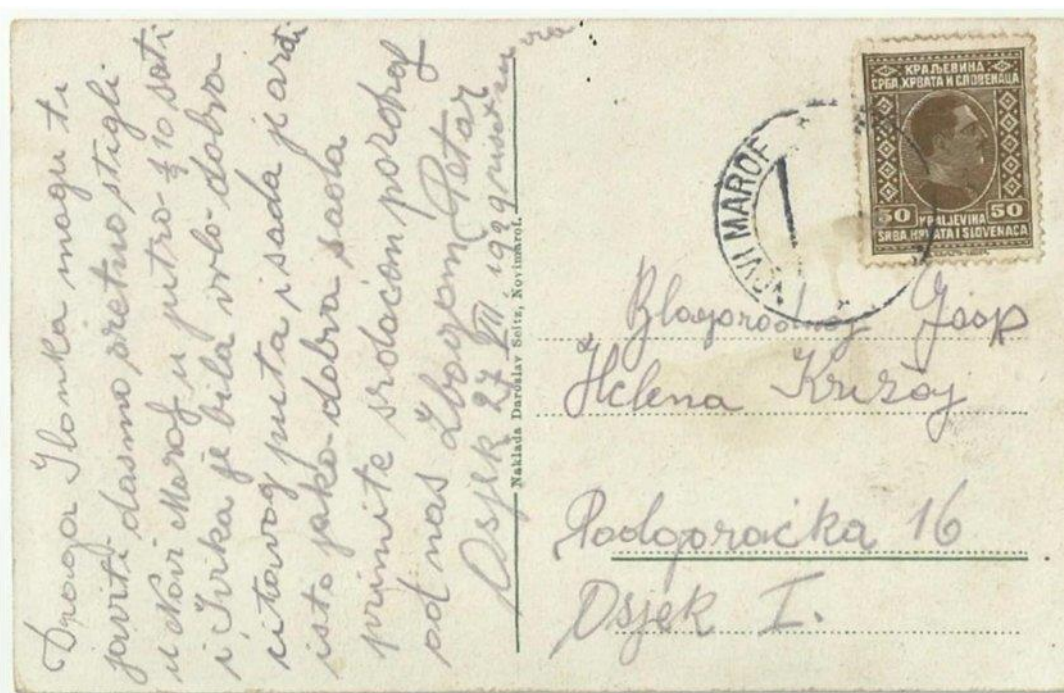 Draga Ilonka mogu ti
javiti da smo sretno stigli
u Novi Marof u jutro 10 sati
i Ivka je bila vrlo dobra
citavog puta i sada je ardi
isto jako dobra sada
primite srdacan pozdrav
od nas Zbogom Petar
Osjek 27 VII 1929
Naklada Daroslav Seitz, Novimarof.
КРАЉЕВИНА
СРБА, ХРВАТА И СЛОВЕНАЦА
50 KRALJEVINA 50
SRBA, HRVATA I SLOVENACA
NOVI MAROF
Blagorodnoj Gosp
Helena Križaj
Podgoračka 16
Osjek I.